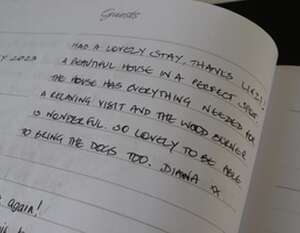 Guests
HAD A LOVELY STAY, THANKS
Y 2023
A BEAUTIFUL HOUSE IN A PERFECT SPOT.
THE HOUSE HAS EVERYTHING NEEDED FOR
A RELAXING VISIT AND THE WOOD BURNER
IS WONDERFUL. SO LOVELY TO BE ABLE
TO BRING THE DOGS TOO. DIANA XX
again!